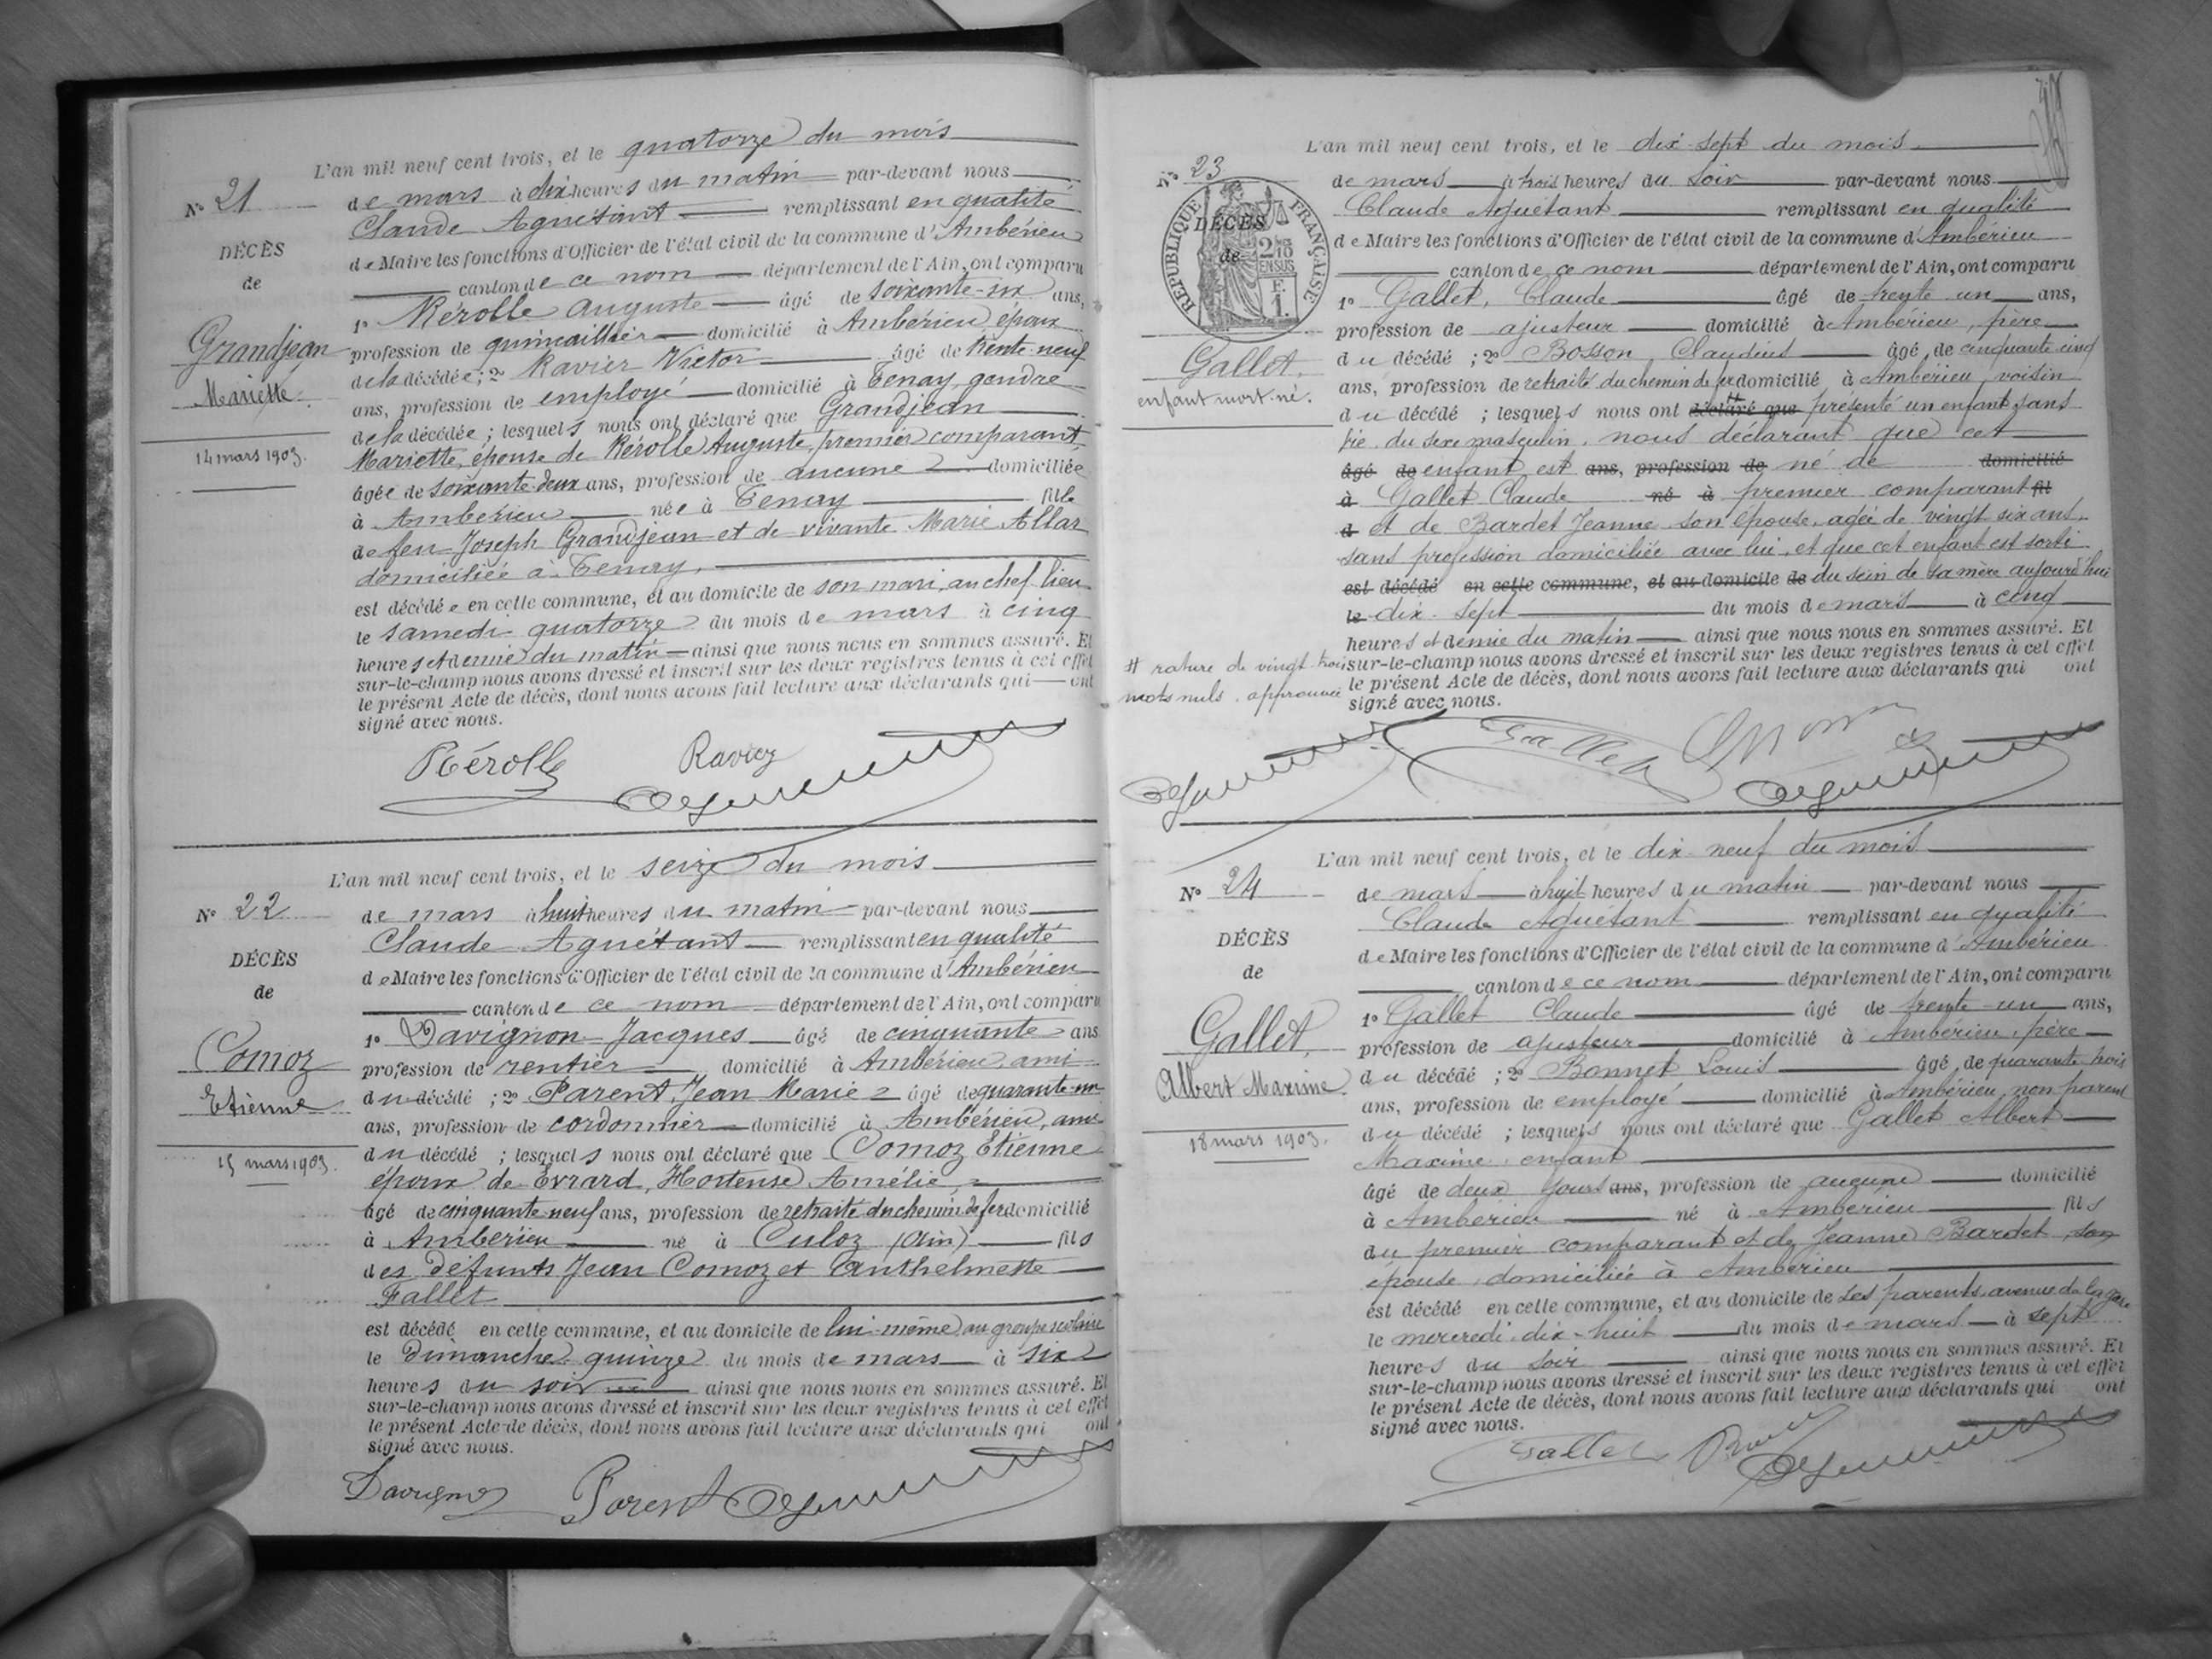 L'an mil neuf cent trois, et le quatorze du mois
N° 21
de mars à dix heures du matin par-devant nous
Claude Aguétant remplissant en qualité
DÉCÈS
de Maire les fonctions d'Officier de l'état civil de la commune d'Ambérieu
de
canton de ce nom département de l'Ain, ont comparu
1° Rérolle Auguste âgé de soixante-six ans,
Grandjean
profession de quincaillier domicilié à Ambérieu, époux
de la décédée ; 2° Ravier Victor âgé de trente-neuf
Mariette.
ans, profession de employé domicilié à Tenay, gendre
de la décédée ; lesquels nous ont déclaré que Grandjean
14 mars 1903.
Mariette, épouse de Rérolle Auguste, premier comparant
âgée de soixante-deux ans, profession de aucune domiciliée
à Ambérieu née à Tenay fille
de feu Joseph Grandjean et de vivante Marie Allar
domiciliée à Tenay,
est décédée en cette commune, et au domicile de son mari, au chef-lieu
le samedi quatorze du mois de mars à cinq
heures et demie du matin ainsi que nous nous en sommes assuré. Et
sur-le-champ nous avons dressé et inscrit sur les deux registres tenus à cet effet
le présent Acte de décès, dont nous avons fait lecture aux déclarants qui ont
signé avec nous.
Rérolle Ravier
L'an mil neuf cent trois, et le seize du mois
N° 22
de mars à huit heures du matin par-devant nous
Claude Aguétant remplissant en qualité
DÉCÈS
de Maire les fonctions d'Officier de l'état civil de la commune d'Ambérieu
de
canton de ce nom département de l'Ain, ont comparu
1° Davignon Jacques âgé de cinquante ans
Comoz
profession de rentier domicilié à Ambérieu, ami
du décédé ; 2° Parent, Jean Marie âgé de quarante-un
Etienne
ans, profession de cordonnier domicilié à Ambérieu, ami
du décédé ; lesquels nous ont déclaré que Comoz Etienne
15 mars 1903.
époux de Evrard, Hortense Amélie,
âgé de cinquante-neuf ans, profession de retraité du chemin de fer domicilié
à Ambérieu né à Culoz (Ain) fils
des défunts Jean Comoz et Anthelmette
Fallet
est décédé en cette commune, et au domicile de lui-même au groupe scolaire
le Dimanche quinze du mois de mars à six
heures du soir ainsi que nous nous en sommes assuré. Et
sur-le-champ nous avons dressé et inscrit sur les deux registres tenus à cet effet
le présent Acte de décès, dont nous avons fait lecture aux déclarants qui ont
signé avec nous.
Davignon Parent
L'an mil neuf cent trois, et le dix-sept du mois
N° 23
de mars à trois heures du soir par-devant nous
RÉPUBLIQUE FRANÇAISE
Claude Aguétant remplissant en qualité
DÉCÈS
de Maire les fonctions d'Officier de l'état civil de la commune d'Ambérieu
de
2/10 EN SUS
canton de ce nom département de l'Ain, ont comparu
F. 1.
1° Gallet, Claude âgé de trente un ans,
profession de ajusteur domicilié à Ambérieu, père
Gallet.
du décédé ; 2° Bosson, Claudius âgé de cinquante cinq
enfant mort-né.
ans, profession de retraité du chemin de fer domicilié à Ambérieu, voisin
du décédé ; lesquels nous ont déclaré que # présenté un enfant sans
vie du sexe masculin, nous déclarant que cet
âgé de enfant est ans, profession de né de domicilié
à Gallet Claude né à premier comparant fil
d et de Bardet Jeanne son épouse, agée de vingt six ans
sans profession domiciliée avec lui, et que cet enfant est sorti
est décédé en cette commune, et au domicile de du sein de sa mère aujourd'hui
le dix-sept du mois de mars à cinq
heures et demie du matin ainsi que nous nous en sommes assuré. Et
# rature de vingt trois
sur-le-champ nous avons dressé et inscrit sur les deux registres tenus à cet effet
mots nuls, approuvée
le présent Acte de décès, dont nous avons fait lecture aux déclarants qui ont
signé avec nous.
Gallet
L'an mil neuf cent trois, et le dix-neuf du mois
N° 24
de mars à huit heures du matin par-devant nous
Claude Aguétant remplissant en qualité
DÉCÈS
de Maire les fonctions d'Officier de l'état civil de la commune d'Ambérieu
de
canton de ce nom département de l'Ain, ont comparu
1° Gallet Claude âgé de trente-un ans,
Gallet,
profession de ajusteur domicilié à Ambérieu, père
Albert Maxime.
du décédé ; 2° Bonnet Louis âgé de quarante trois
ans, profession de employé domicilié à Ambérieu, non parent
18 mars 1903.
du décédé ; lesquels nous ont déclaré que Gallet Albert
Maxime, enfant
âgé de deux jours ans, profession de aucune domicilié
à Ambérieu né à Ambérieu fils
du premier comparant et de Jeanne Bardet son
épouse, domiciliée à Ambérieu
est décédé en cette commune, et au domicile de ses parents, avenue de la gare
le mercredi dix-huit du mois de mars à sept
heures du soir ainsi que nous nous en sommes assuré. Et
sur-le-champ nous avons dressé et inscrit sur les deux registres tenus à cet effet
le présent Acte de décès, dont nous avons fait lecture aux déclarants qui ont
signé avec nous.
Gallet